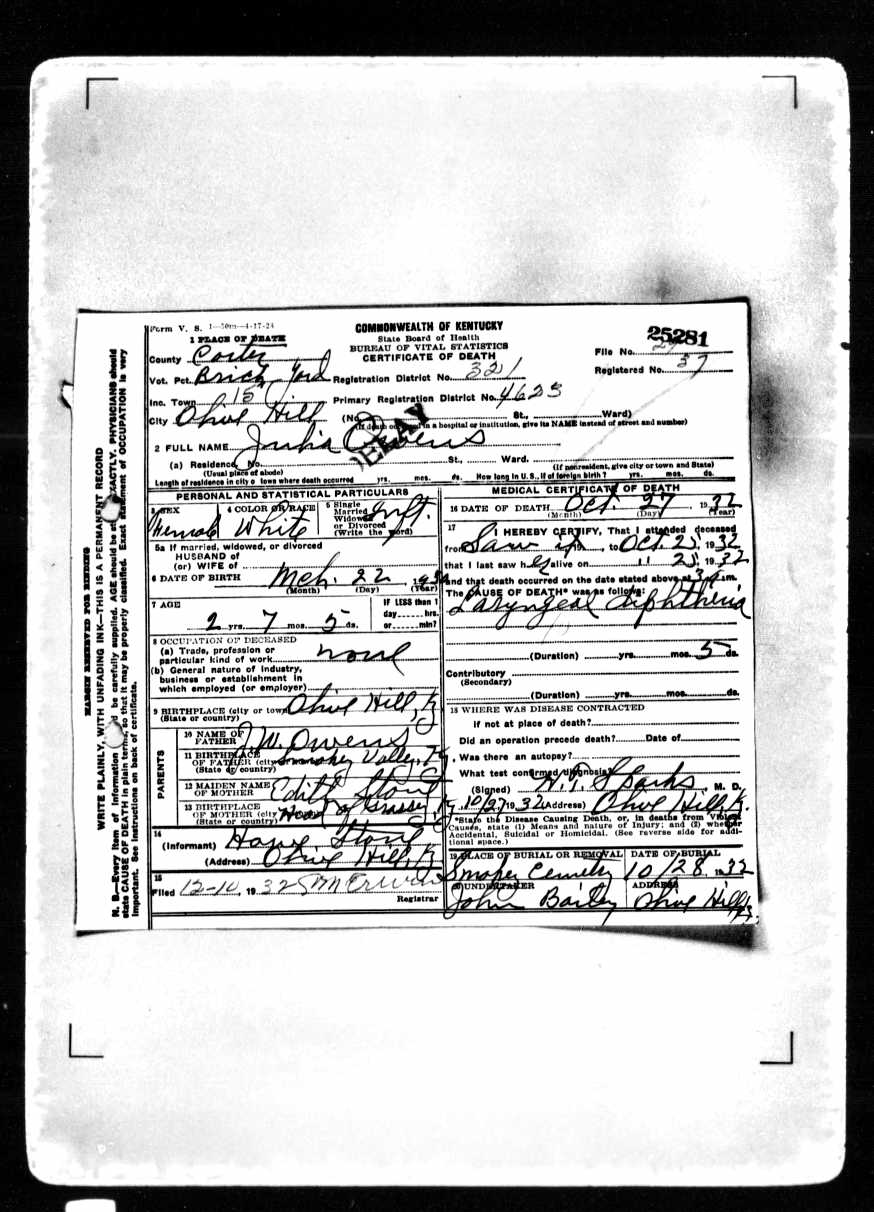 Form V. S. 1—50m—4-17-24
COMMONWEALTH OF KENTUCKY
State Board of Health
BUREAU OF VITAL STATISTICS
CERTIFICATE OF DEATH
1 PLACE OF DEATH
25281
File No.
Registered No. 37
County Carter
Vot. Pct. Brick Yard Registration District No. 321
Inc. Town 15 Primary Registration District No. 4623
City Olive Hill (No. St., Ward)
(If death occurred in a hospital or institution, give its NAME instead of street and number)
DELAY
2 FULL NAME Julia Owens
(a) Residence, No. St., Ward.
(Usual place of abode) (If nonresident, give city or town and State)
Length of residence in city or town where death occurred yrs. mos. ds. How long in U. S., if of foreign birth? yrs. mos. ds.
PERSONAL AND STATISTICAL PARTICULARS
3 SEX Female
4 COLOR OR RACE White
5 Single Married Widowed or Divorced (Write the word) Inft.
5a If married, widowed, or divorced
HUSBAND of
(or) WIFE of
6 DATE OF BIRTH Mch. 22, 193
(Month) (Day) (Year)
7 AGE
2 yrs. 7 mos. 5 ds.
IF LESS than 1
day hrs.
or min?
8 OCCUPATION OF DECEASED
(a) Trade, profession or
particular kind of work none
(b) General nature of industry,
business or establishment in
which employed (or employer)
9 BIRTHPLACE (city or town) Olive Hill, Ky
(State or country)
PARENTS
10 NAME OF FATHER J. W. Owens
11 BIRTHPLACE OF FATHER (city Smokey Valley, Ky
(State or country)
12 MAIDEN NAME OF MOTHER Edith Stone
13 BIRTHPLACE OF MOTHER (city Head of Grassy Ky
(State or country)
14
(Informant) Stone
(Address) Olive Hill, K
15
Filed 12-10, 1932
Registrar
MEDICAL CERTIFICATE OF DEATH
16 DATE OF DEATH Oct. 27 1932
(Month) (Day) (Year)
17 I HEREBY CERTIFY, That I attended deceased
from Saw , to Oct. 25, 1932
that I last saw her alive on 11 25, 1932
and that death occurred on the date stated above at 3 m.
The CAUSE OF DEATH* was as follows:
Laryngeal diphtheria
(Duration) yrs. mos. 5 ds.
Contributory
(Secondary)
(Duration) yrs. mos. ds.
18 WHERE WAS DISEASE CONTRACTED
If not at place of death?
Did an operation precede death? Date of
Was there an autopsy?
What test confirmed diagnosis?
(Signed) Sparks M. D.
10/27 1932 (Address) Olive Hill, K.
*State the Disease Causing Death, or, in deaths from Violent
Causes, state (1) Means and nature of Injury; and (2) whether
Accidental, Suicidal or Homicidal. (See reverse side for addi-
tional space.)
19 PLACE OF BURIAL OR REMOVAL DATE OF BURIAL
Smokey Cemetery 10/28. 1932
20 UNDERTAKER ADDRESS
John Bailey Olive Hill Ky.
MARGIN RESERVED FOR BINDING
WRITE PLAINLY, WITH UNFADING INK—THIS IS A PERMANENT RECORD
N. B.—Every item of information be carefully supplied. AGE should be EXACTLY. PHYSICIANS should
state CAUSE OF DEATH in plain terms, so that it may be properly classified. Exact of OCCUPATION is very
important. See instructions on back of certificate.